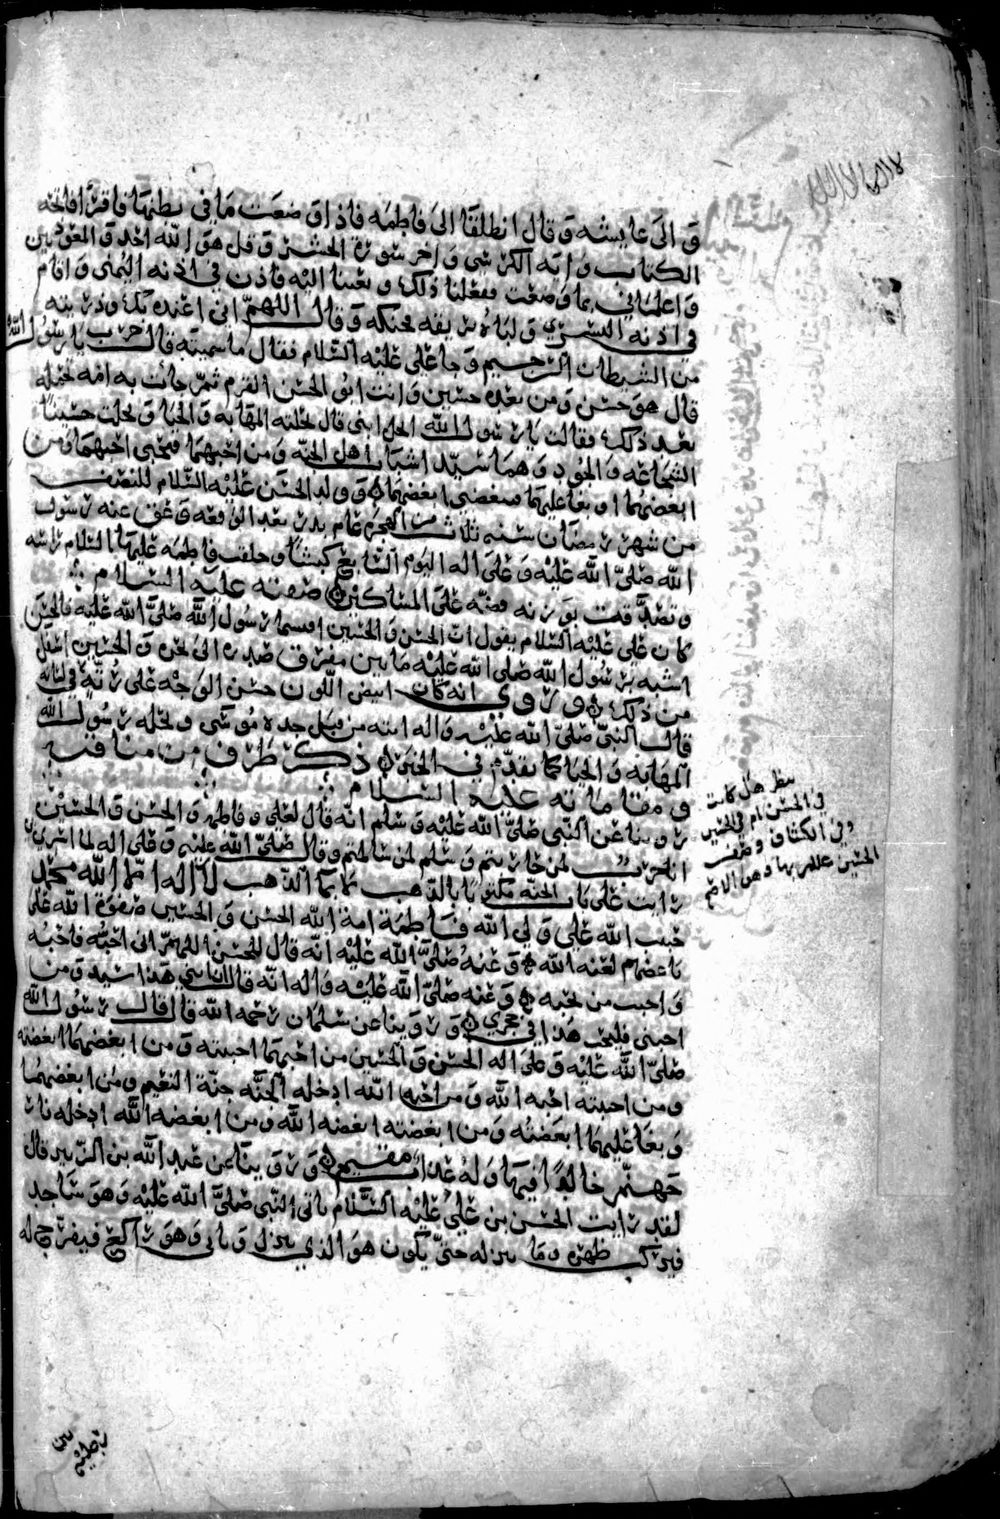 لا اله الا الله
و الى عايشه و قال انطلقا الى فاطمه فاذا وضعت ما في بطنها فاقرأا فاتحة
الكتاب و اية الكرسي و اخر سورة الحشر و قل هو الله احد و المعوذتين
و اعلماني بما وضعت ففعلنا ذلك و بعثنا اليه فاذن في اذنه اليمنى و اقام
في اذنه اليسرى و لباه بريقه محنكه و قال اللهم اني اعيذه بك و ذريته
من الشيطان الرجيم و جا علي عليه السلام فقال ما سميته قال حرب يا رسول الله
قال هو حسن و من بعده حسين و انت ابو الحسن القرم ثم جائت به امه تحمله
بعد ذلك فقالت يا رسول الله انحل ابني قال نحلته المهابه و الحيا و نحلت حسينا
الشجاعه و الجود و هما سيدا شباب اهل الجنه و من احبهما فبحبي احبهما و من
ابغضهما او بغا عليهما فببغضي ابغضهما و ولد الحسن عليه السلام للنصف
من شهر رمضان سنه ثلاث من الهجره عام بدر بعد الوقعه و عق عنه رسول
الله صلى الله عليه و على اله اليوم السابع كبشا و حلقت فاطمه عليها السلام راسه
و تصدقت بوزنه فضه على المساكين صفته عليه السلام
كان علي عليه السلام يقول ان الحسن و الحسين اقسما رسول الله صلى الله عليه فالحسن
اشبه برسول الله صلى الله عليه ما بين مفرق صدره الى نحره و الحسين اسفل
من ذلك و روي انه كان ابيض اللون حسن الوجه على رته في لسانه
قال النبي صلى الله عليه و اله اتته من قبل جده موسى و نحله رسول الله
المهابه و الحيا كما تقدم في الخبر ذكر طرف من مناقبه
و مقاماته عليه السلام
روينا عن النبي صلى الله عليه و سلم انه قال لعلي و فاطمه و الحسن و الحسين
انا حرب لمن حاربتم و سلم لمن سالمتم و قال صلى الله عليه و على اله لما اسري بي
رايت على باب الجنه مكتوبا بالذهب لا بما الذهب لا اله الا الله محمد
حبيب الله علي ولي الله فاطمة امة الله الحسن و الحسين صفوة الله على
باغضهم لعنه الله و عنه صلى الله عليه انه قال للحسن اللهم اني احبه فاحبه
و احبب من يحبه و عنه صلى الله عليه و اله انه قال ابني هذا سيد و من
احبني فليحب هذا في حجري و روينا عن سلمان رحمه الله قال قال رسول الله
صلى الله عليه و على اله الحسن و الحسين من احبهما احببته و من ابغضهما ابغضته
و من احببته احبه الله و من احبه الله ادخله الجنه جنة النعيم و من ابغضهما
و بغا عليهما ابغضته و من ابغضته ابغضه الله و من ابغضه الله ادخله نار
جهنم خالدا فيها و له عذاب مقيم و روينا عن عبد الله بن الزبير قال
لقد رايت الحسن بن علي عليه السلام ياتي النبي صلى الله عليه و هو ساجد
فيركب ظهره و ما ينزله حتى يكون هو الذي ينزل و ياتي و هو راكع فيفرج له
ينظر هل كانت
في الحسن ام في الحسين
و في الكشاف